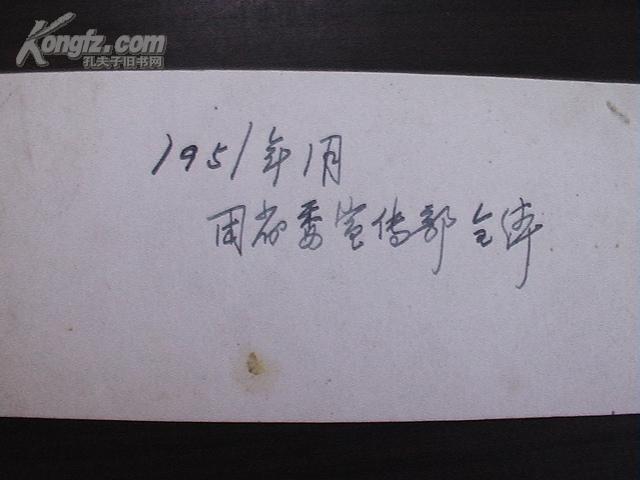 Kongfz.com
孔夫子旧书网
1951年1月
团省委宣传部全体